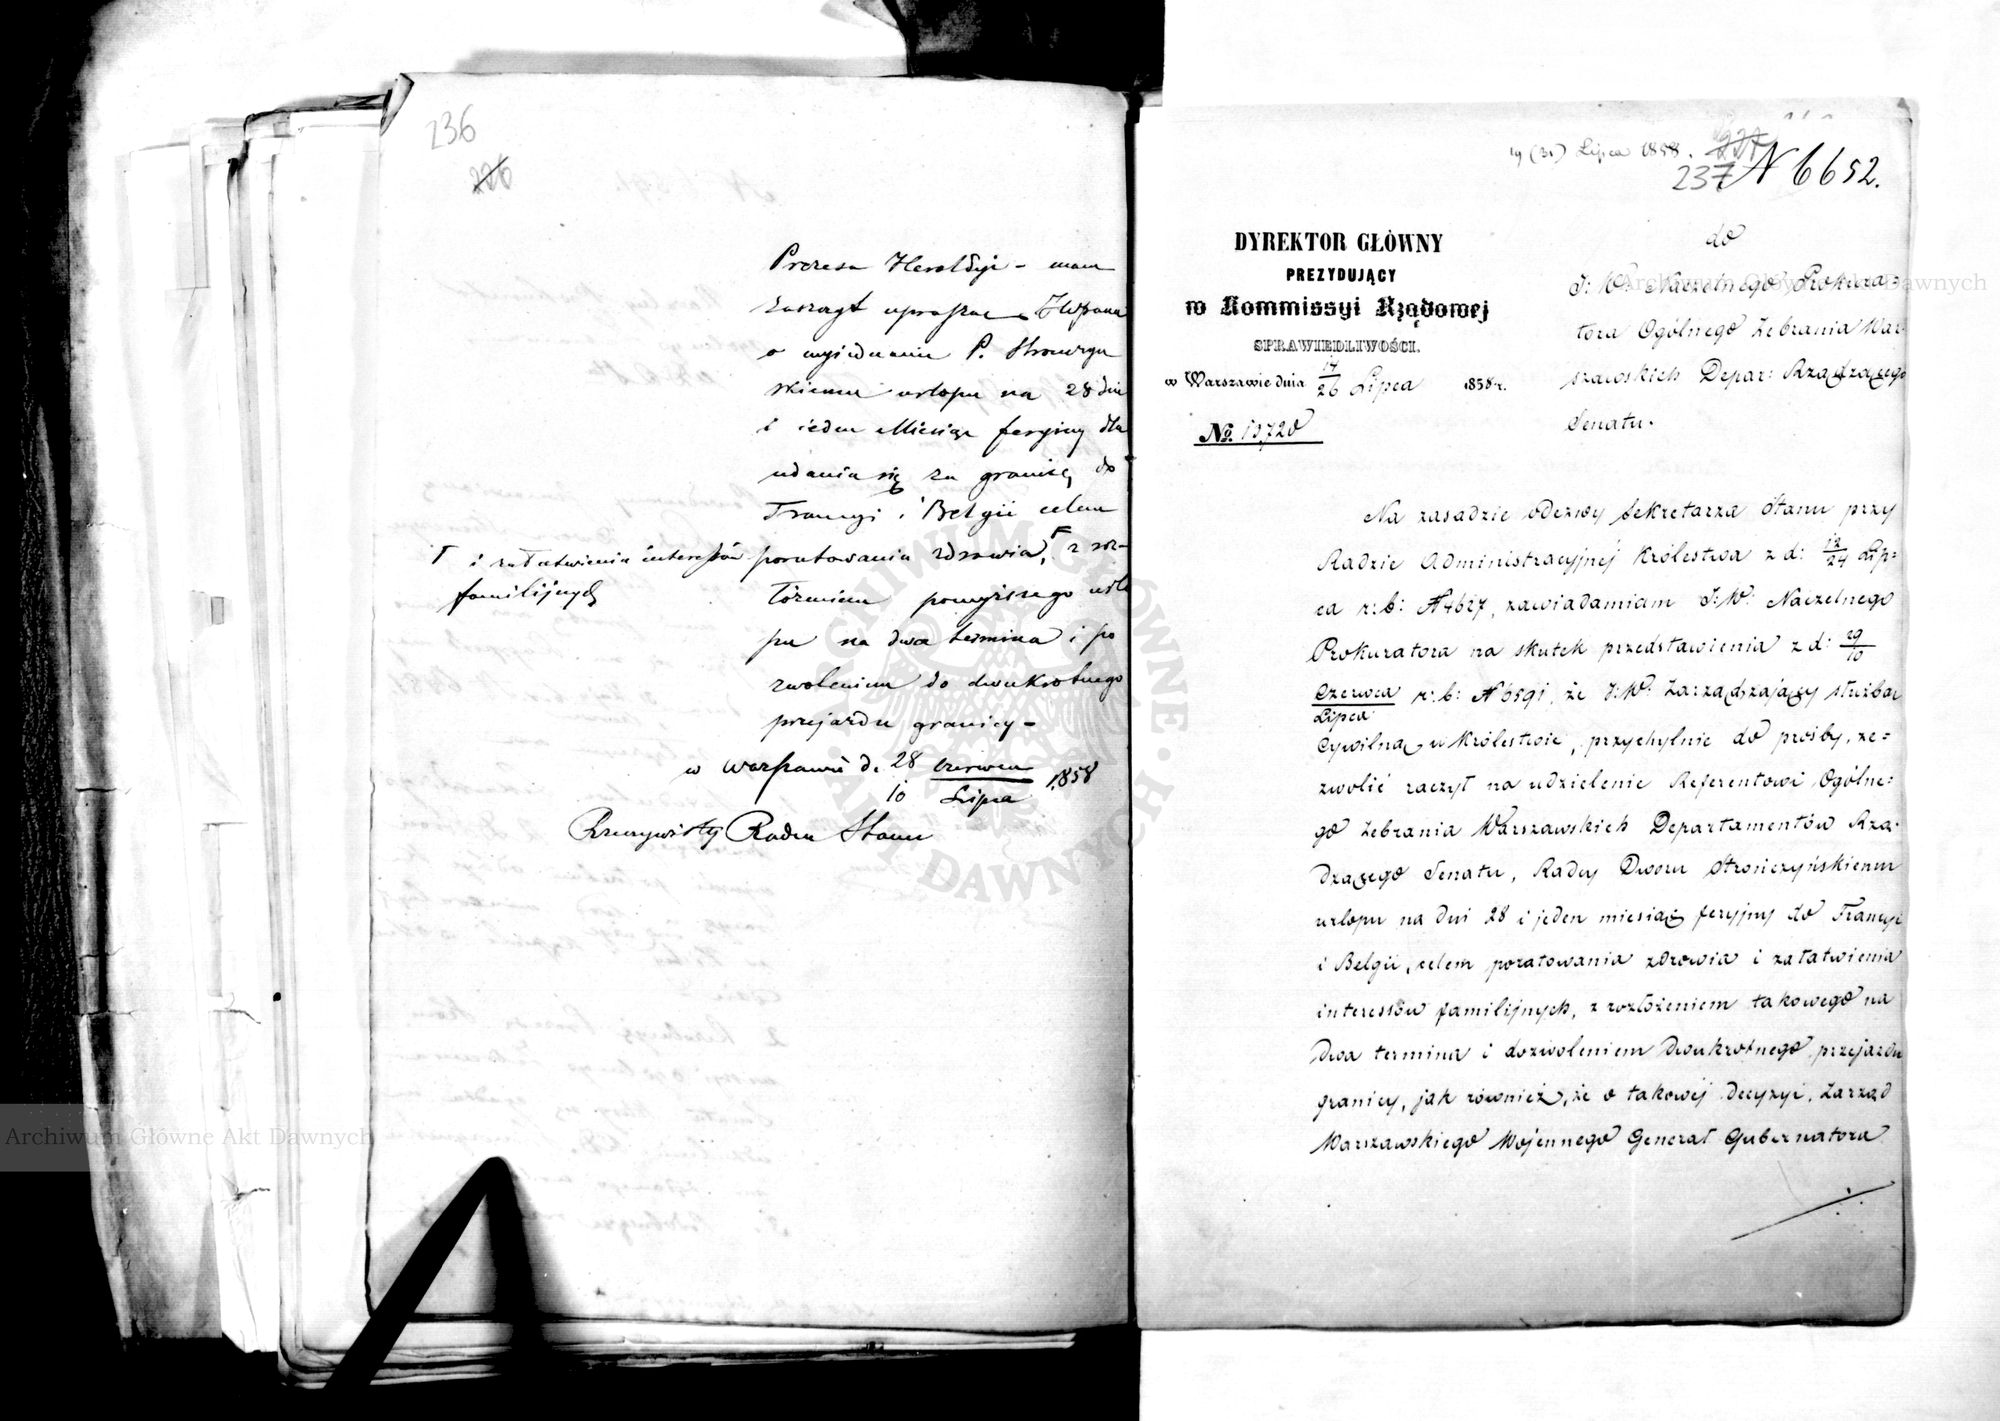 236
226
Prezesa Heroldyi – mam
zaszczyt upraszać JWPana
o wyjednanie P. Stronczyń
skiemu urlopu na 28 dni
i jeden Miesiąc feryiny dla
udania się za granicę do
Francyi i Belgii celem
poratowania zdrowia, Γ z roz-
Γ i załatwienia interessów
familijnych
łożeniem powyższego urlo
pu na dwa termina i po
zwoleniem do dwukrotnego
przejazdu granicy –
w Warszawie d. 28/10 Czerwca/Lipca 1858
Rzeczywisty Radca Stanu
19 (31) Lipca 1858.
237
237 N 6652.
DYREKTOR GŁÓWNY
PREZYDUJĄCY
w Kommissyi Rządowej
SPRAWIEDLIWOŚCI.
w Warszawie dnia 14/26 Lipca 1858 r.
No. 13720
do
J: W: Naczelnego Prokura-
tora Ogólnego Zebrania War-
szawskich Depar: Rządzącego
Senatu.
Na zasadzie odezwy Sekretarza Stanu przy
Radzie Administracyjnej Królestwa z d: 12/24 Lip-
ca r: b: N 4627, zawiadamiam J: W: Naczelnego
Prokuratora na skutek przedstawienia z d: 29/10
Czerwca/Lipca r: b: N 6591, że J: W: Zarządzający służbą
Cywilną w Królestwie, przychylnie do prośby, ze=
zwolić raczył na udzielenie Referentowi Ogólne-
go Zebrania Warszawskich Departamentów Rzą-
dzącego Senatu, Radcy Dworu Strończyńskiemu
urlopu na dni 28 i jeden miesiąc feryjny do Francyi
i Belgii, celem poratowania zdrowia i załatwienia
interessów familijnych, z rozłożeniem takowego na
dwa termina i dozwoleniem dwukrotnego przejazdu
granicy, jak również, że o takowej decyzyi, Zarząd
Warszawskiego Wojennego Generał Gubernatora
Archiwum Główne Akt Dawnych
Archiwum Główne Akt Dawnych
ARCHIWUM GŁÓWNE · AKT DAWNYCH ·